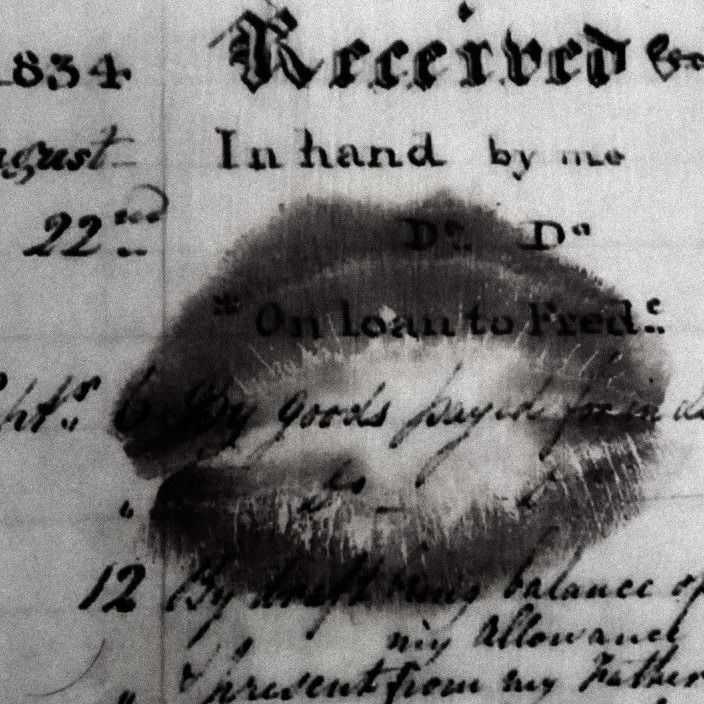 1834 Received &c
August
In hand by me
22nd Do Do
" On loan to Fredc
Septr 6 By goods payed
"
12 By draft being balance of
my allowance
" & present from my Father